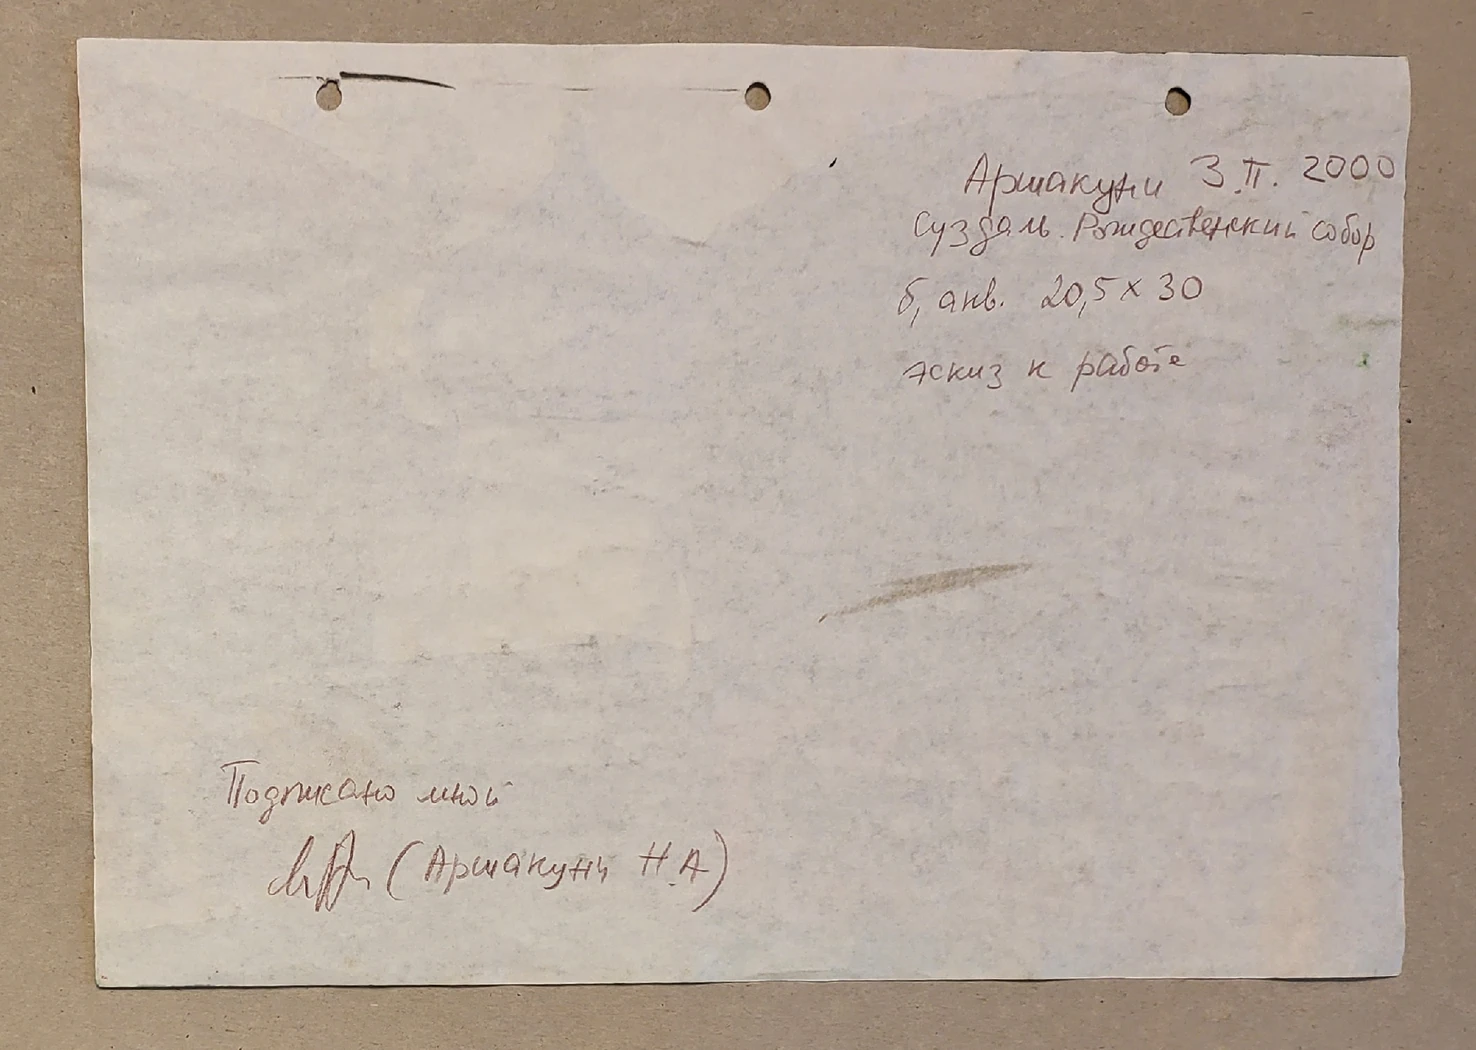 Аршакуни З.П. 2000
Суздаль. Рождественский собор
б, акв. 20,5 х 30
эскиз к работе
Подписано мной
(Аршакуни Н.А)